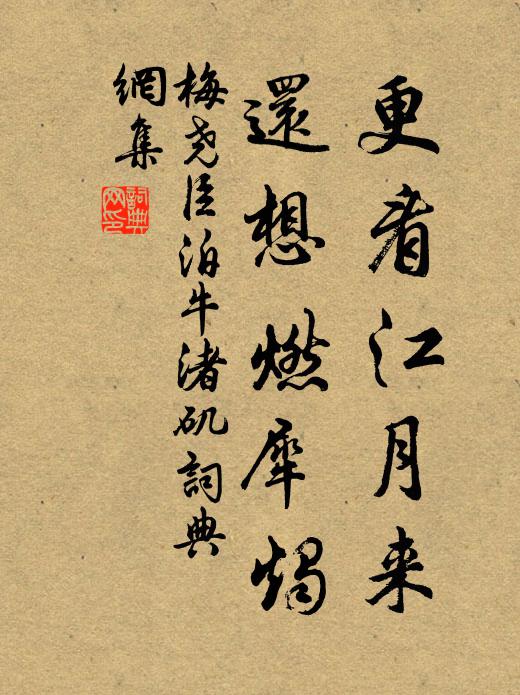 更看江月来
還想燃犀燭
梅尧臣泊牛渚矶詞典
網集
詞典
网印